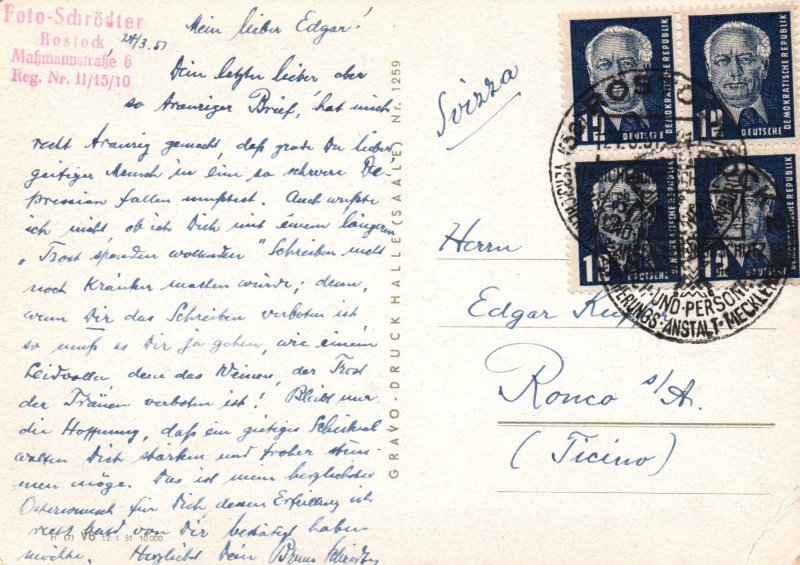 Foto-Schrödter
Rostock
Maßmannstraße 6
Reg. Nr. 11/15/10
24/3.51
Mein lieber Edgar!
Dein letzter lieber aber
so trauriger Brief, hat mich
recht traurig gemacht, daß grade Du lieber
geistiger Mensch in eine so schwere De-
pression fallen mußtest. Auch wußte
ich nicht ob ich Dich mit einem langen
"Trost spenden wollenden" Schreiben nicht
noch kränker machen würde; denn,
wenn Dir das Schreiben verboten ist,
so muß es Dir ja gehen, wie einem
Leidvollen, dem das Weinen, der Trost
der Tränen verboten ist! Bleibt nur
die Hoffnung, daß ein gütiges Schicksal
walten Dich stärken und froher stim-
men möge. Das ist mein herzlichster
Osterwunsch für Dich, dessen Erfüllung ich
recht bald von Dir bestätigt haben
möchte. Herzlichst Dein
H (7) V6 12 1 51 10 000
GRAVO-DRUCK HALLE (SAALE) Nr. 1259
Svizza
DEUTSCHE DEMOKRATISCHE REPUBLIK
DEUTSCHE DEMOKRATISCHE REPUBLIK
DEUTSCHE DEMOKRATISCHE REPUBLIK
DEUTSCHE
ROSTOCK
UND PERSONEN
VERSICHERUNGS-ANSTALT MECKLENBURG
Herrn
Edgar
Ronco s/A.
(Ticino)